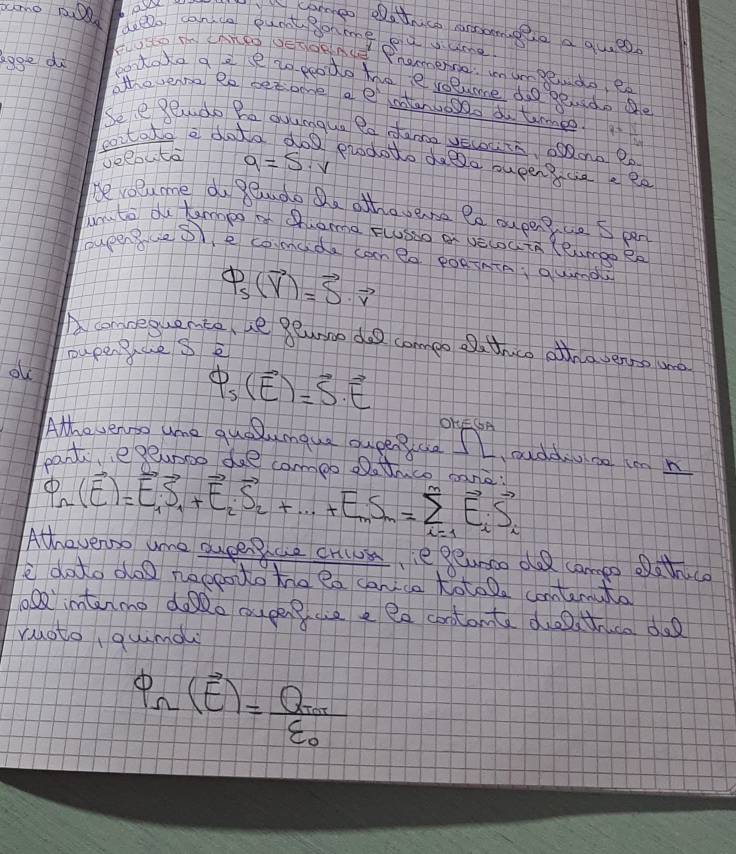 campo elettrico assomiglia a quello
della carica puntiforme più vicina.
FLUSSO DI CAMPO VETTORIALE Premessa: in un fluido, la
portata q è il rapporto tra il volume del fluido che
attraversa la sezione e l'intervallo di tempo.
Se il fluido ha ovunque la stessa VELOCITÀ, allora la
portata è data dal prodotto della superficie e la
velocità q = S · v
Il volume di fluido che attraversa la superficie S per
unità di tempo si chiama FLUSSO DI VELOCITÀ (lungo la
superficie S), e coincide con la PORTATA; quindi
Φs(V⃗) = S⃗ · v⃗
Di conseguenza, il flusso del campo elettrico attraverso una
superficie S è
Φs(E⃗) = S⃗ · E⃗
OMEGA
Attraverso una qualunque superficie Ω, suddivisa in n
parti, il flusso del campo elettrico sarà:
ΦΩ(E⃗) = E⃗₁·S⃗₁ + E⃗₂·S⃗₂ + ... + EₙSₙ = Σⁿᵢ₌₁ E⃗ᵢ·S⃗ᵢ
Attraverso una superficie CHIUSA, il flusso del campo elettrico
è dato dal rapporto tra la carica totale contenuta
all'interno della superficie e la costante dielettrica del
vuoto, quindi
ΦΩ(E⃗) = Q_TOT / ε₀
legge di
di